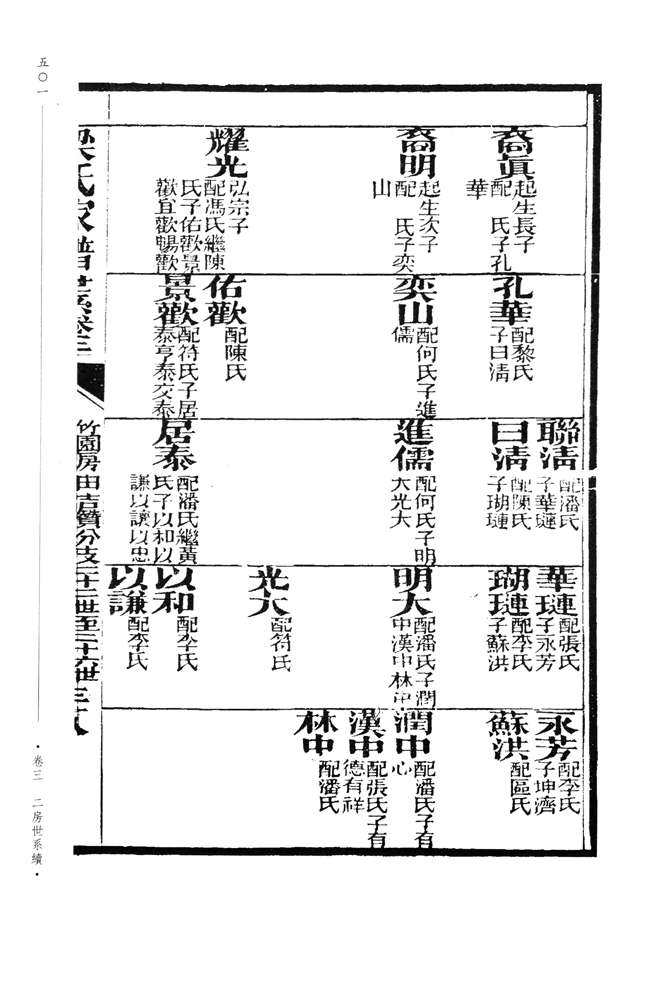 五〇一
裔眞
起生長子
配　氏子孔
華
裔明
起生次子
配　氏子奕
山
耀光
弘宗子
配馮氏繼陳
氏子佑歡景
歡宜歡暢歡
孔華
配黎氏
子曰淸
奕山
配何氏子進
儒
佑歡
配陳氏
景歡
配符氏子居
泰亨泰交泰
聯淸
配潘氏
子華璉
曰淸
配陳氏
子瑚璉
進儒
配何氏子明
大光大
居泰
配潘氏繼黃
氏子以和以
謙以讓以忠
華璉
配張氏
子永芳
瑚璉
配李氏
子蘇洪
明大
配潘氏子潤
中漢中林中
光大
配符氏
以和
配李氏
以謙
配李氏
永芳
配李氏
子坤濟
蘇洪
配區氏
潤中
配潘氏子有
心
漢中
配張氏子有
德有祥
林中
配潘氏
梁氏家譜世系卷三
竹園房由吉贊分支二十二世至二十六世
卷三　二房世系續